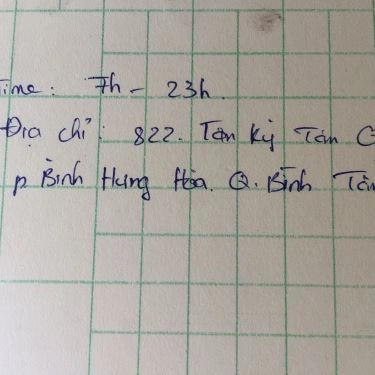 Time: 7h - 23h.
Địa chỉ: 822. Tân Kỳ Tân
p Bình Hưng Hòa. Q. Bình Tân